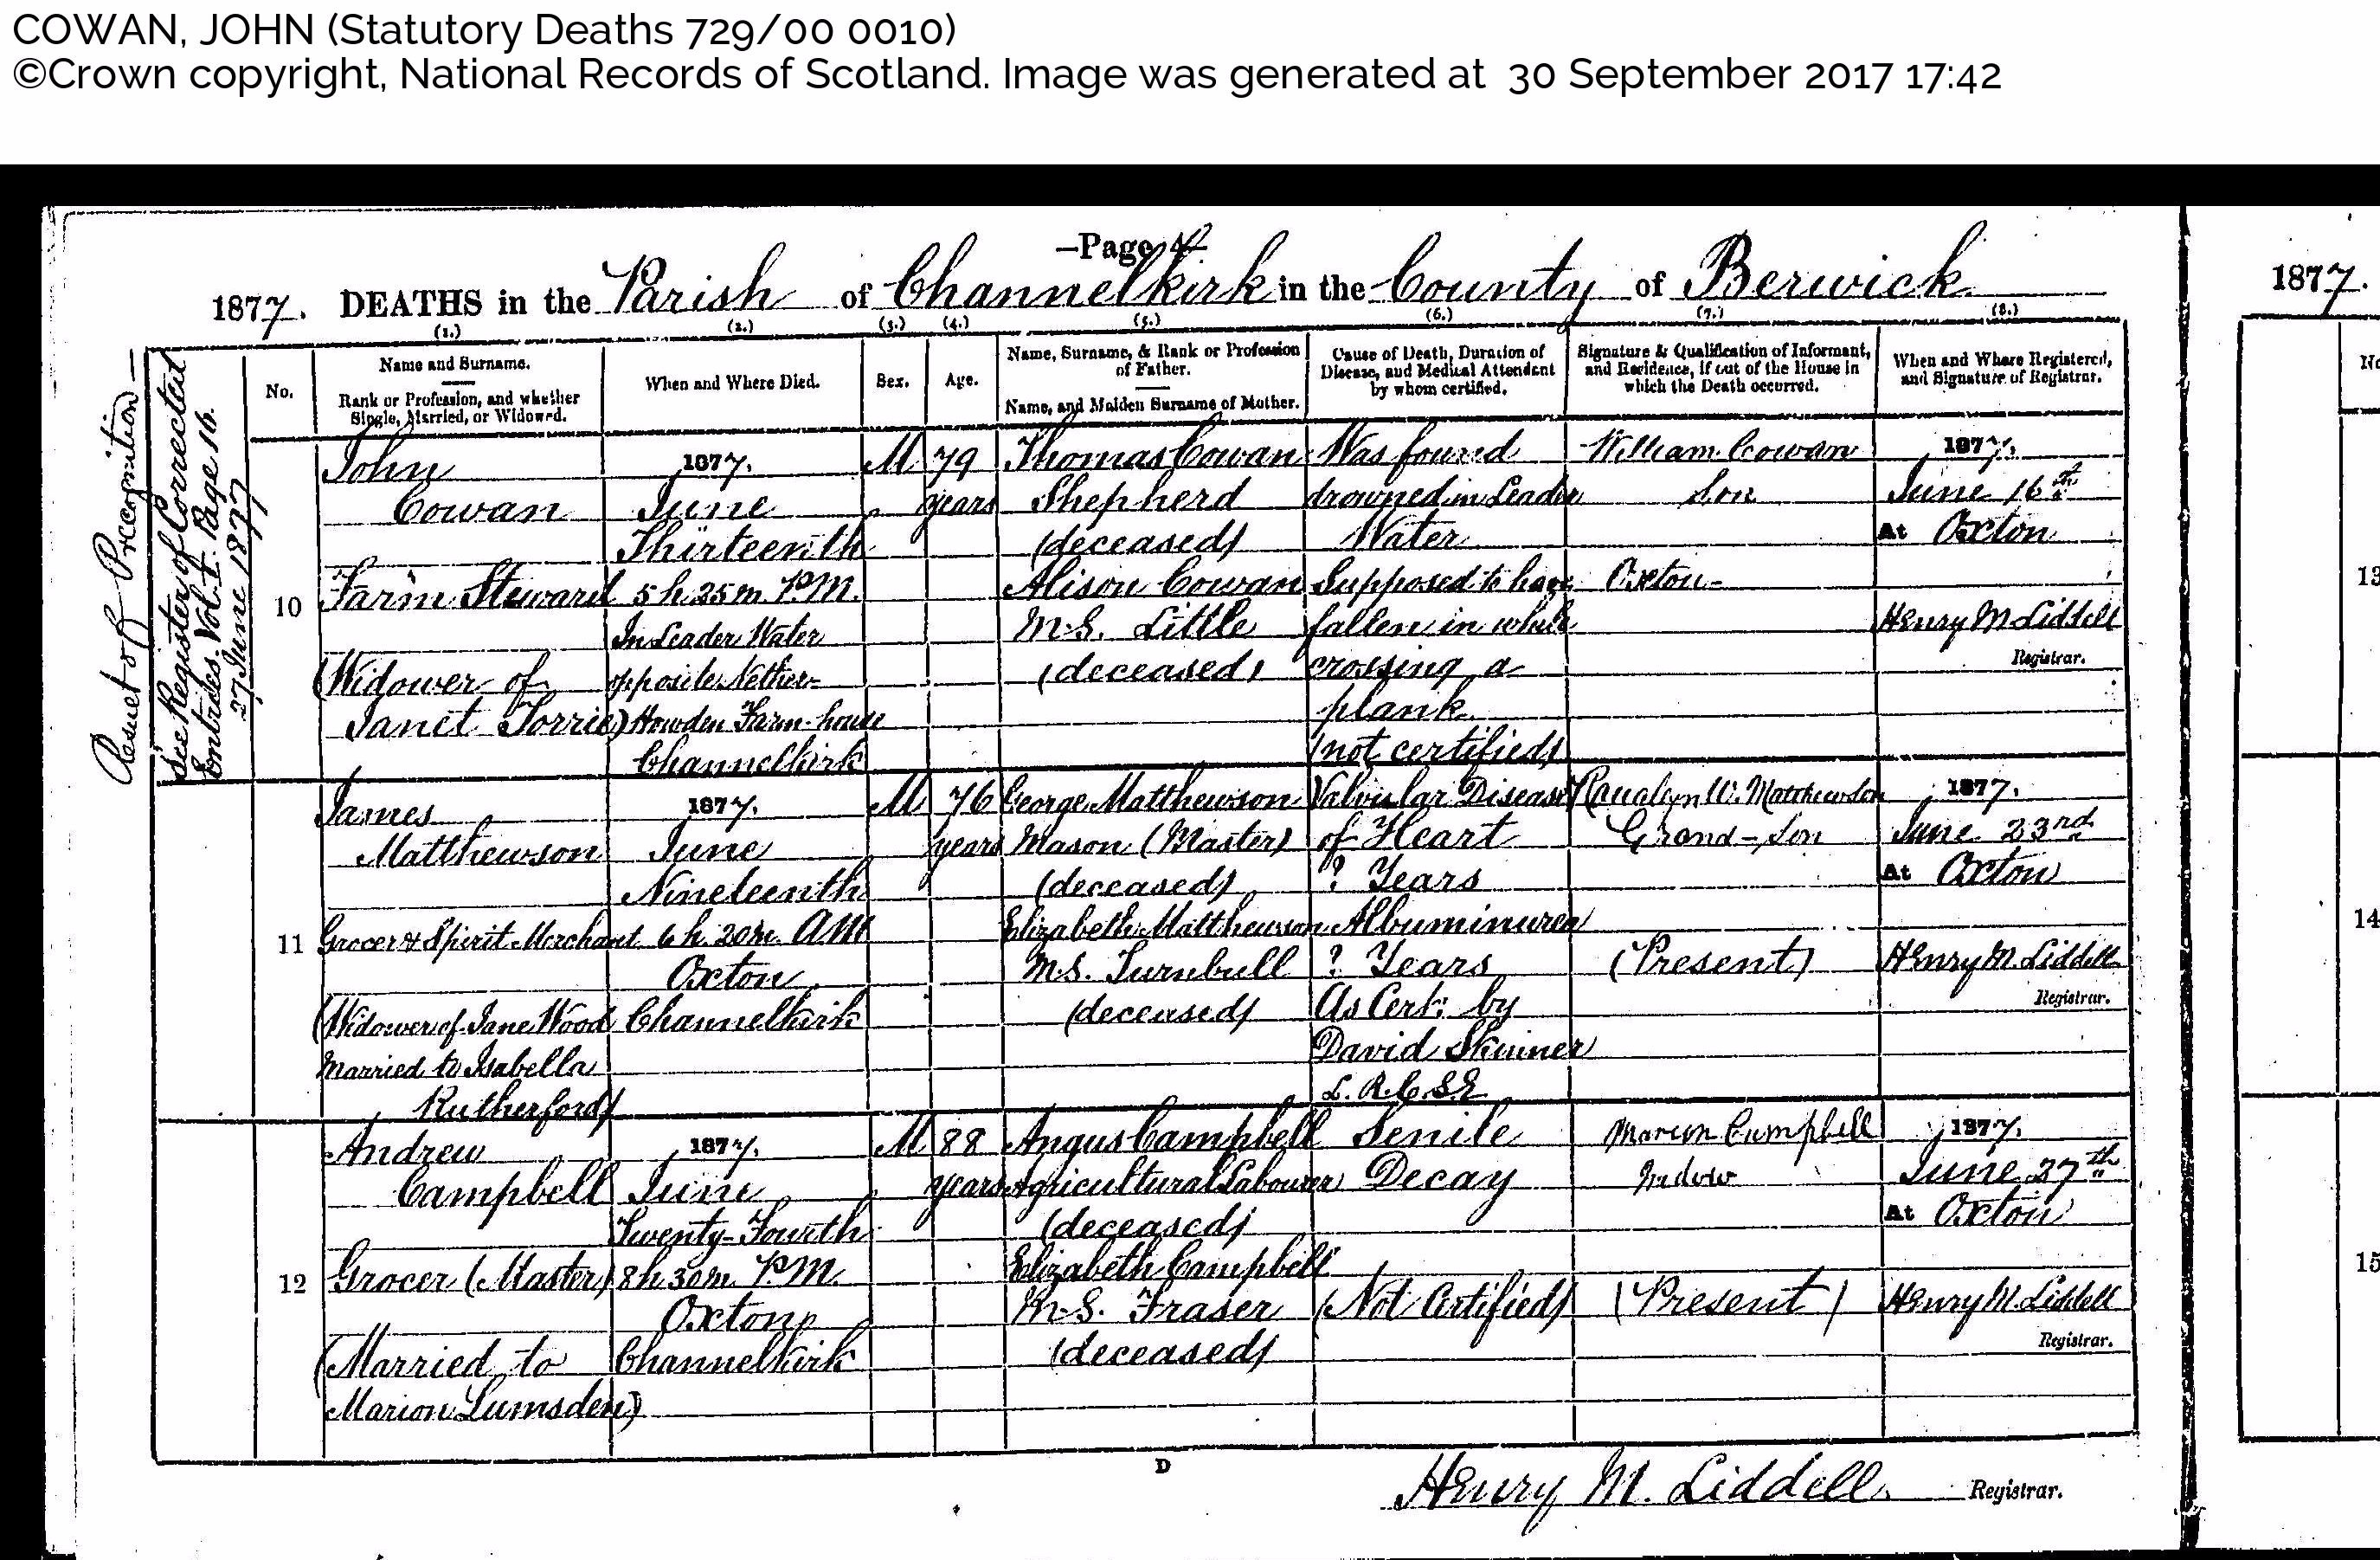 COWAN, JOHN (Statutory Deaths 729/00 0010)
©Crown copyright, National Records of Scotland. Image was generated at 30 September 2017 17:42
—Page 4—
1877. DEATHS in the Parish of Channelkirk in the County of Berwick
1877.
(1.) (2.) (3.) (4.) (5.) (6.) (7.) (8.)
No.
Name and Surname.
Rank or Profession, and whether
Single, Married, or Widowed.
When and Where Died.
Sex.
Age.
Name, Surname, & Rank or Profession
of Father.
Name, and Maiden Surname of Mother.
Cause of Death, Duration of
Disease, and Medical Attendant
by whom certified.
Signature & Qualification of Informant,
and Residence, if out of the House in
which the Death occurred.
When and Where Registered,
and Signature of Registrar.
of Precognition—
See Register of Corrected
Entries. Vol. I. Page 16.
27 June 1877
10
John
Cowan
Farm Steward
(Widower of
Janet Torrie)
1877.
June
Thirteenth
5h. 25m. P.M.
In Leader Water
opposite Nether-
Howden Farm-house
Channelkirk
M
79
years
Thomas Cowan
Shepherd
(deceased)
Alison Cowan
M.S. Little
(deceased)
Was found
drowned in Leader
Water
Supposed to have
fallen in while
crossing a
plank
(not certified)
William Cowan
Son
Oxton
1877.
June 16th
At Oxton
Henry M Liddell
Registrar.
11
James
Matthewson
Grocer & Spirit Merchant
(Widower of Jane Wood
Married to Isabella
Rutherford)
1877.
June
Nineteenth
6h. 20m. AM
Oxton
Channelkirk
M
76
years
George Matthewson
Mason (Master)
(deceased)
Elizabeth Matthewson
M.S. Turnbull
(deceased)
Valvular Disease
of Heart
? Years
Albuminurea
? Years
As Cert: by
David Skinner
L.R.C.S.E
W. Matthewson
Grand-Son
(Present)
1877.
June 23rd
At Oxton
Henry M. Liddell
Registrar.
12
Andrew
Campbell
Grocer (Master)
(Married to
Marion Lumsden)
1877.
June
Twenty-Fourth
8h 30m. P.M.
Oxton
Channelkirk
M
88
years
Angus Campbell
Agricultural Labourer
(deceased)
Elizabeth Campbell
M.S. Fraser
(deceased)
Senile
Decay
(Not Certified)
Marion Campbell
Widow
(Present)
1877.
June 27th
At Oxton
Henry M. Liddell
Registrar.
D
Henry M. Liddell. Registrar.
No
13
14
15